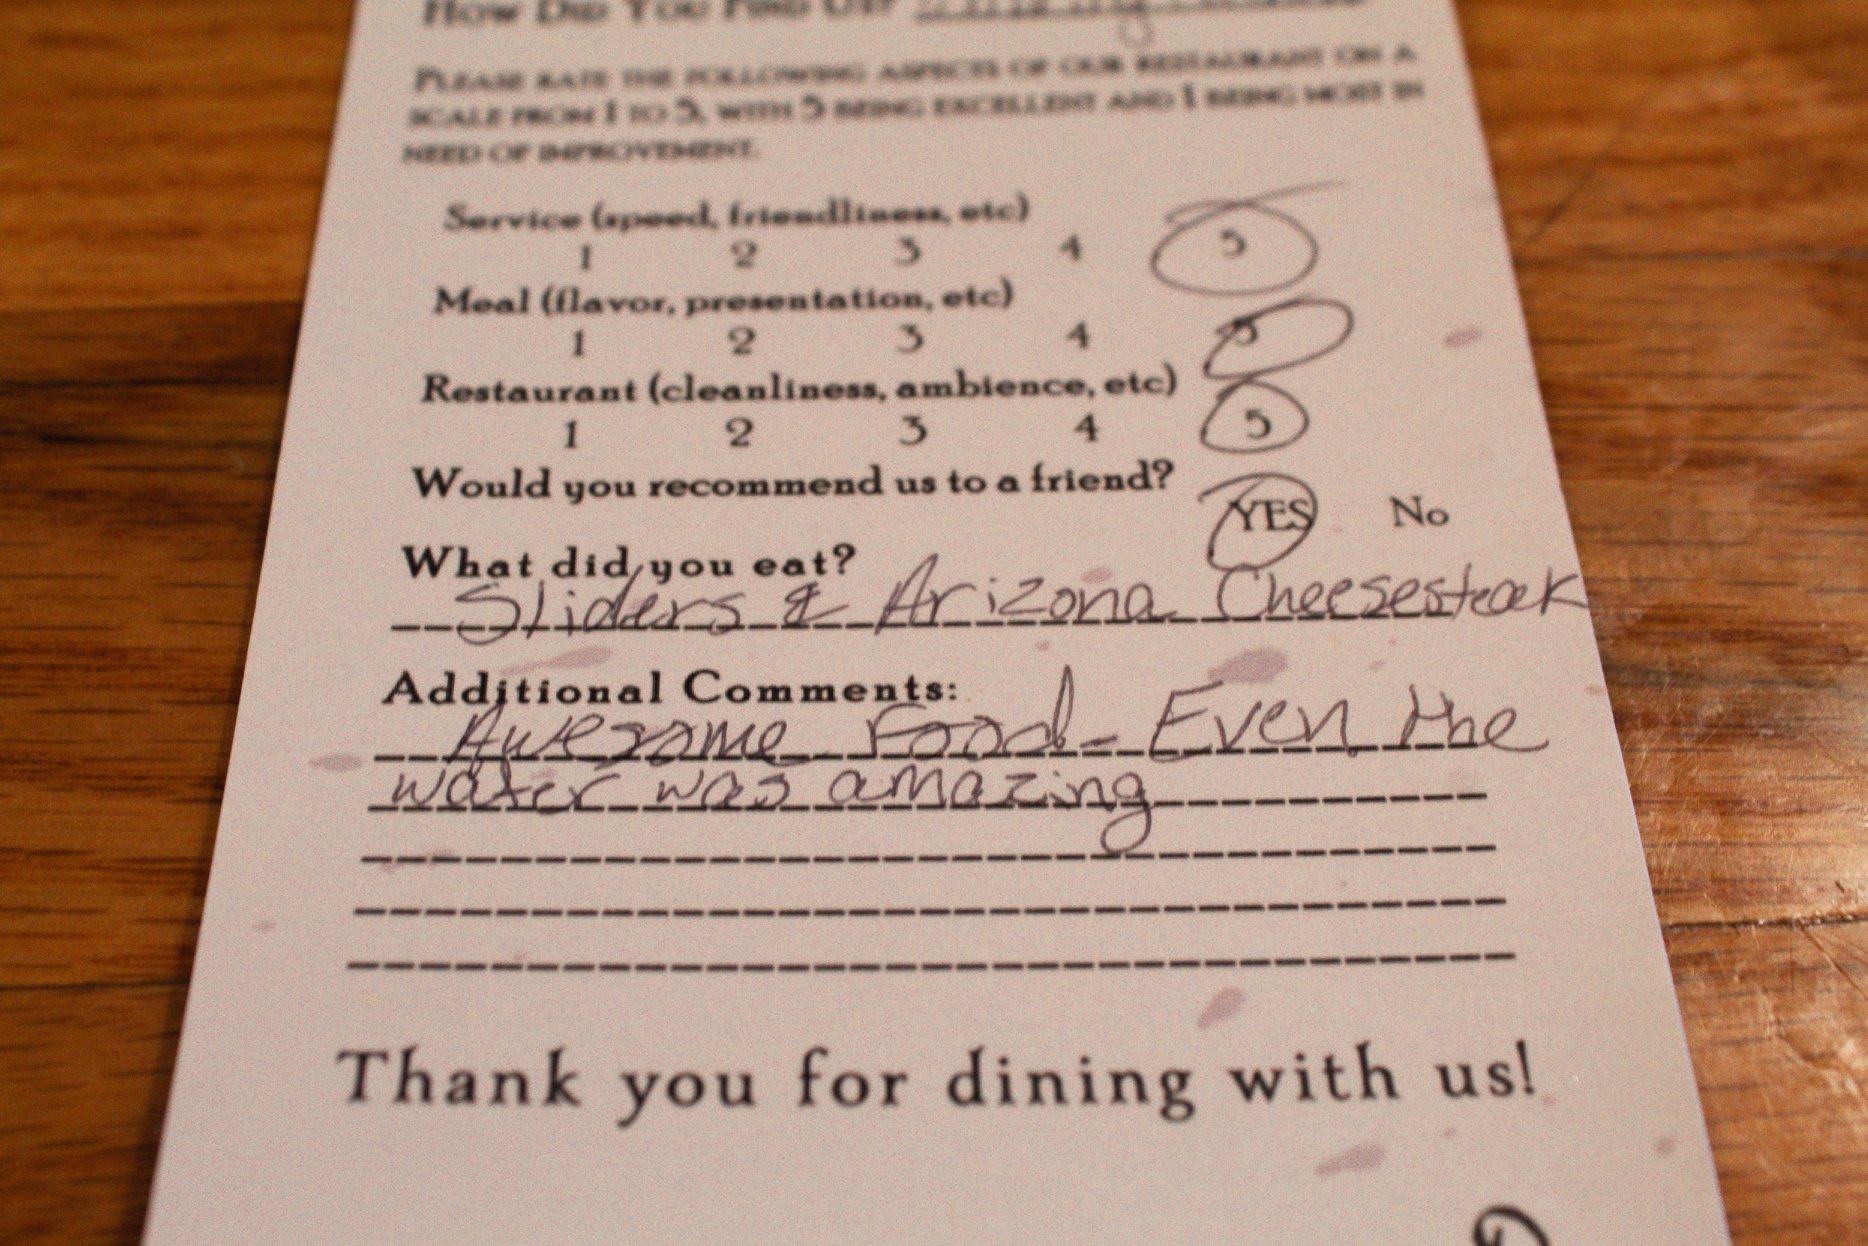 How Did You Find Us?
Please rate the following aspects of our restaurant on a
scale from 1 to 5, with 5 being excellent and 1 being most in
need of improvement.
Service (speed, friendliness, etc)
1 2 3 4 5
Meal (flavor, presentation, etc)
1 2 3 4 5
Restaurant (cleanliness, ambience, etc)
1 2 3 4 5
Would you recommend us to a friend?
YES No
What did you eat?
Sliders & Arizona Cheesesteak
Additional Comments:
Awesome Food - Even the
water was amazing
Thank you for dining with us!